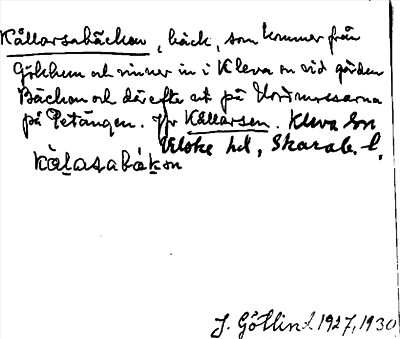 Kållarsabäcken, bäck, som kommer från
Gökhem och rinner in i Kleva sn vid gården
Bäcken och därefter ut på Hornmossarna
på Petängen. Jfr Kållarsen. Kleva sn
Vilske hd, Skarab. l.
kòlasabäkɔn
J. Götlind 1927, 1930